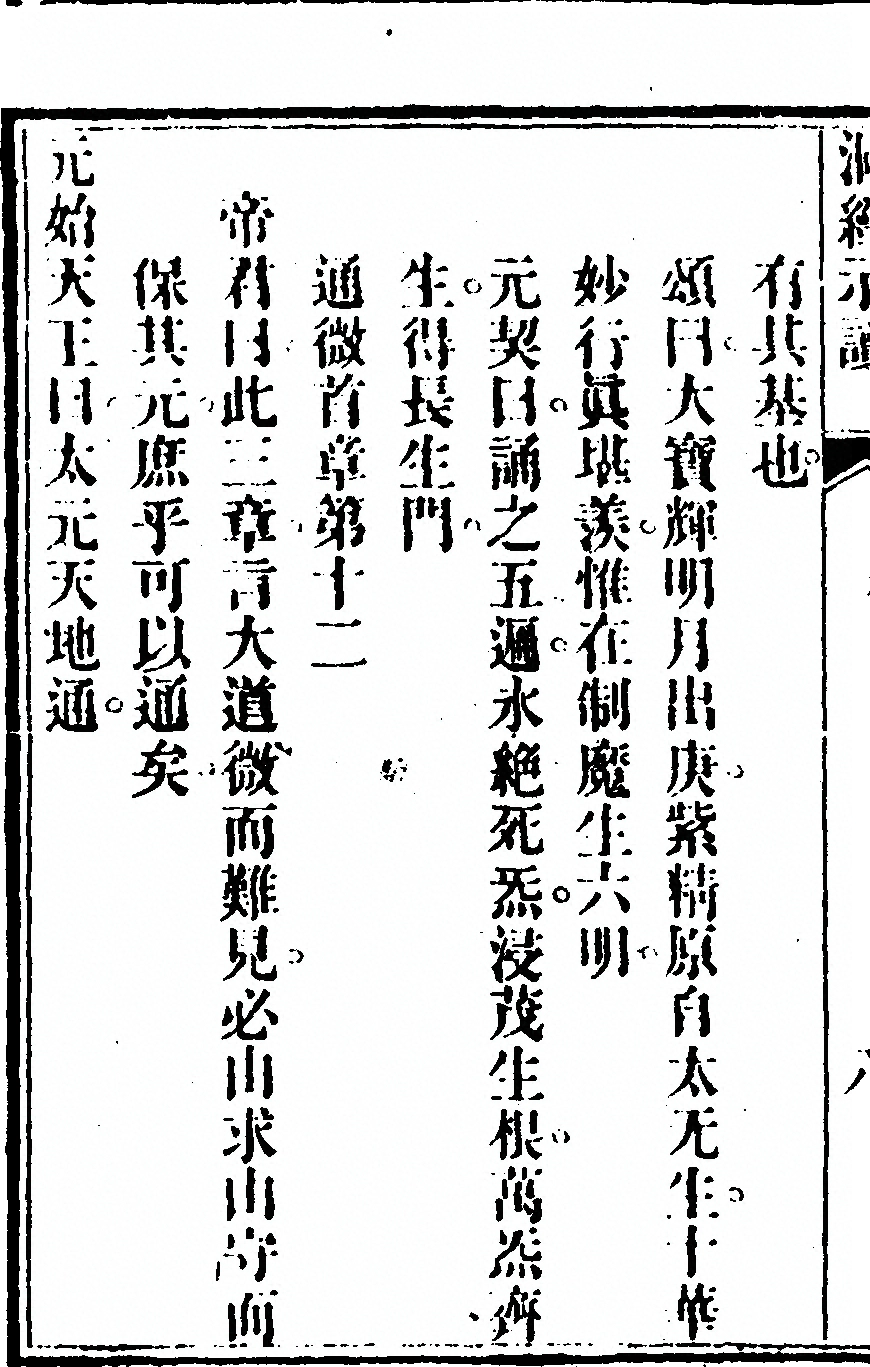 洞經示讀
八
有其基也
頌曰大寶輝明月出庚紫精原自太无生十華
妙行眞堪羨惟在制魔生六明
元契曰誦之五遍永絶死炁浸茂生根萬炁齊
生得長生門
通微首章第十二
帝君曰此三章言大道微而難見必由求由守而
保其元庶乎可以通矣
元始天王曰太元天地通